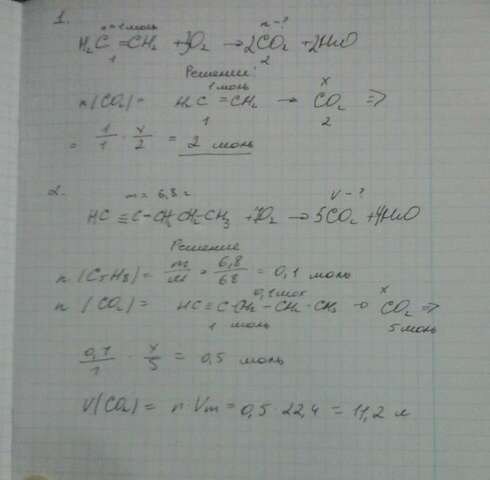 1.
n=1 моль n-?
H₂C=CH₂ + 3O₂ → 2CO₂ + 2H₂O
1 2
Решение:
1 моль x
n(CO₂)= H₂C=CH₂ → CO₂ ⇒
1 2
= 1/1 · x/2 = 2 моль
2. m = 6,8 г V-?
HC≡C-CH₂-CH₂-CH₃ + 7O₂ → 5CO₂ + 4H₂O
Решение
n(C₅H₈) = m/M = 6,8/68 = 0,1 моль
0,1 мол x
n(CO₂)= HC≡C-CH₂-CH₂-CH₃ → CO₂ ⇒
1 моль 5 моль
0,1/1 · x/5 = 0,5 моль
V(CO₂)= n·Vm = 0,5·22,4 = 11,2 л